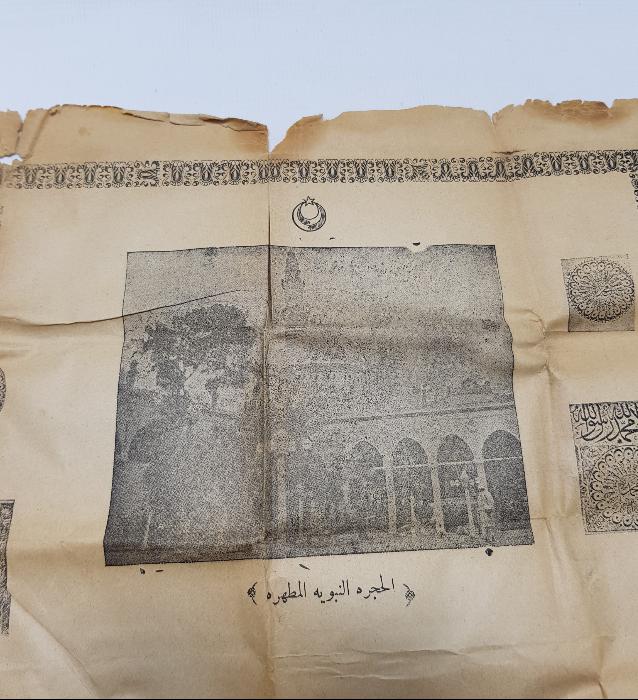 محمد رسول الله
﴿ الحجره النبويه المطهره ﴾